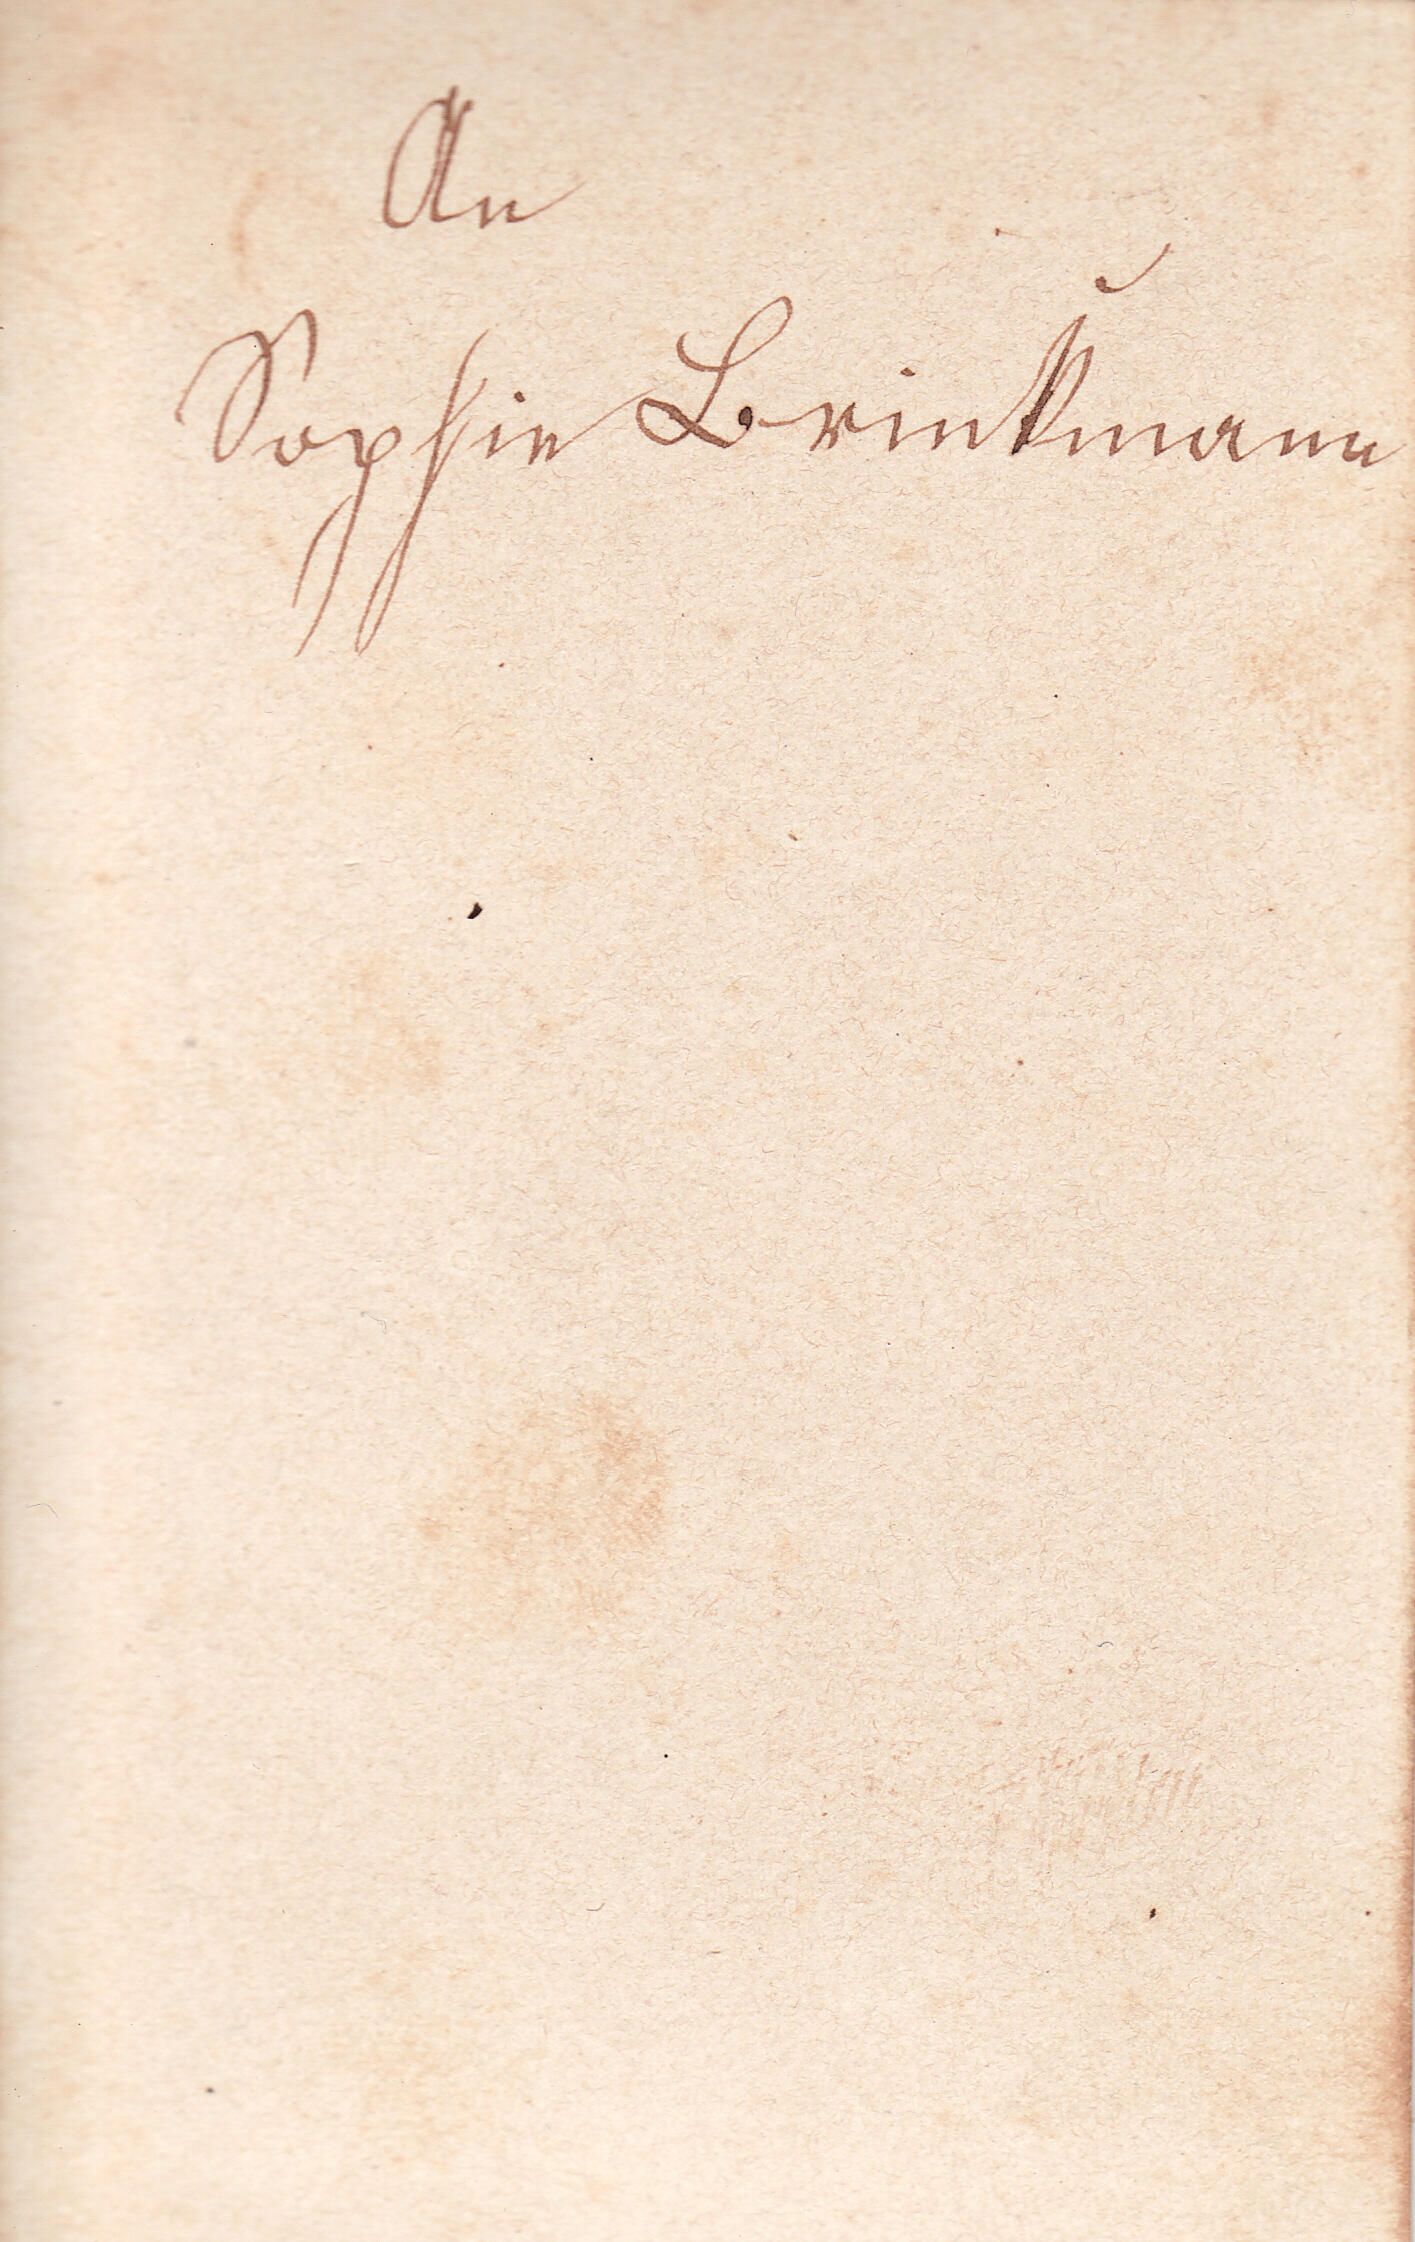 An
Sophie Brinkmann